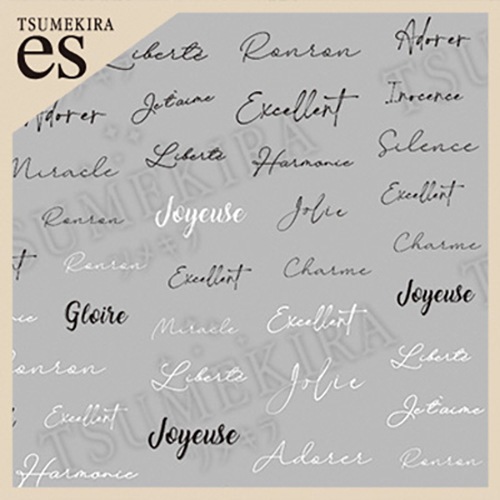 TSUMEKIRA
es
Liberté Ronron Adorer
Adorer Je t'aime Excellent Inocence
Miracle Liberté Harmonie Silence
Ronron Joyeuse Jolie Excellent
Ronron Excellent Charme Charme
Gloire Miracle Excellent Joyeuse
Ronron Liberté Jolie Liberté
Excellent Joyeuse Je t'aime
Harmonie Adorer Ronron
TSUMEKIRA
ツメキラ